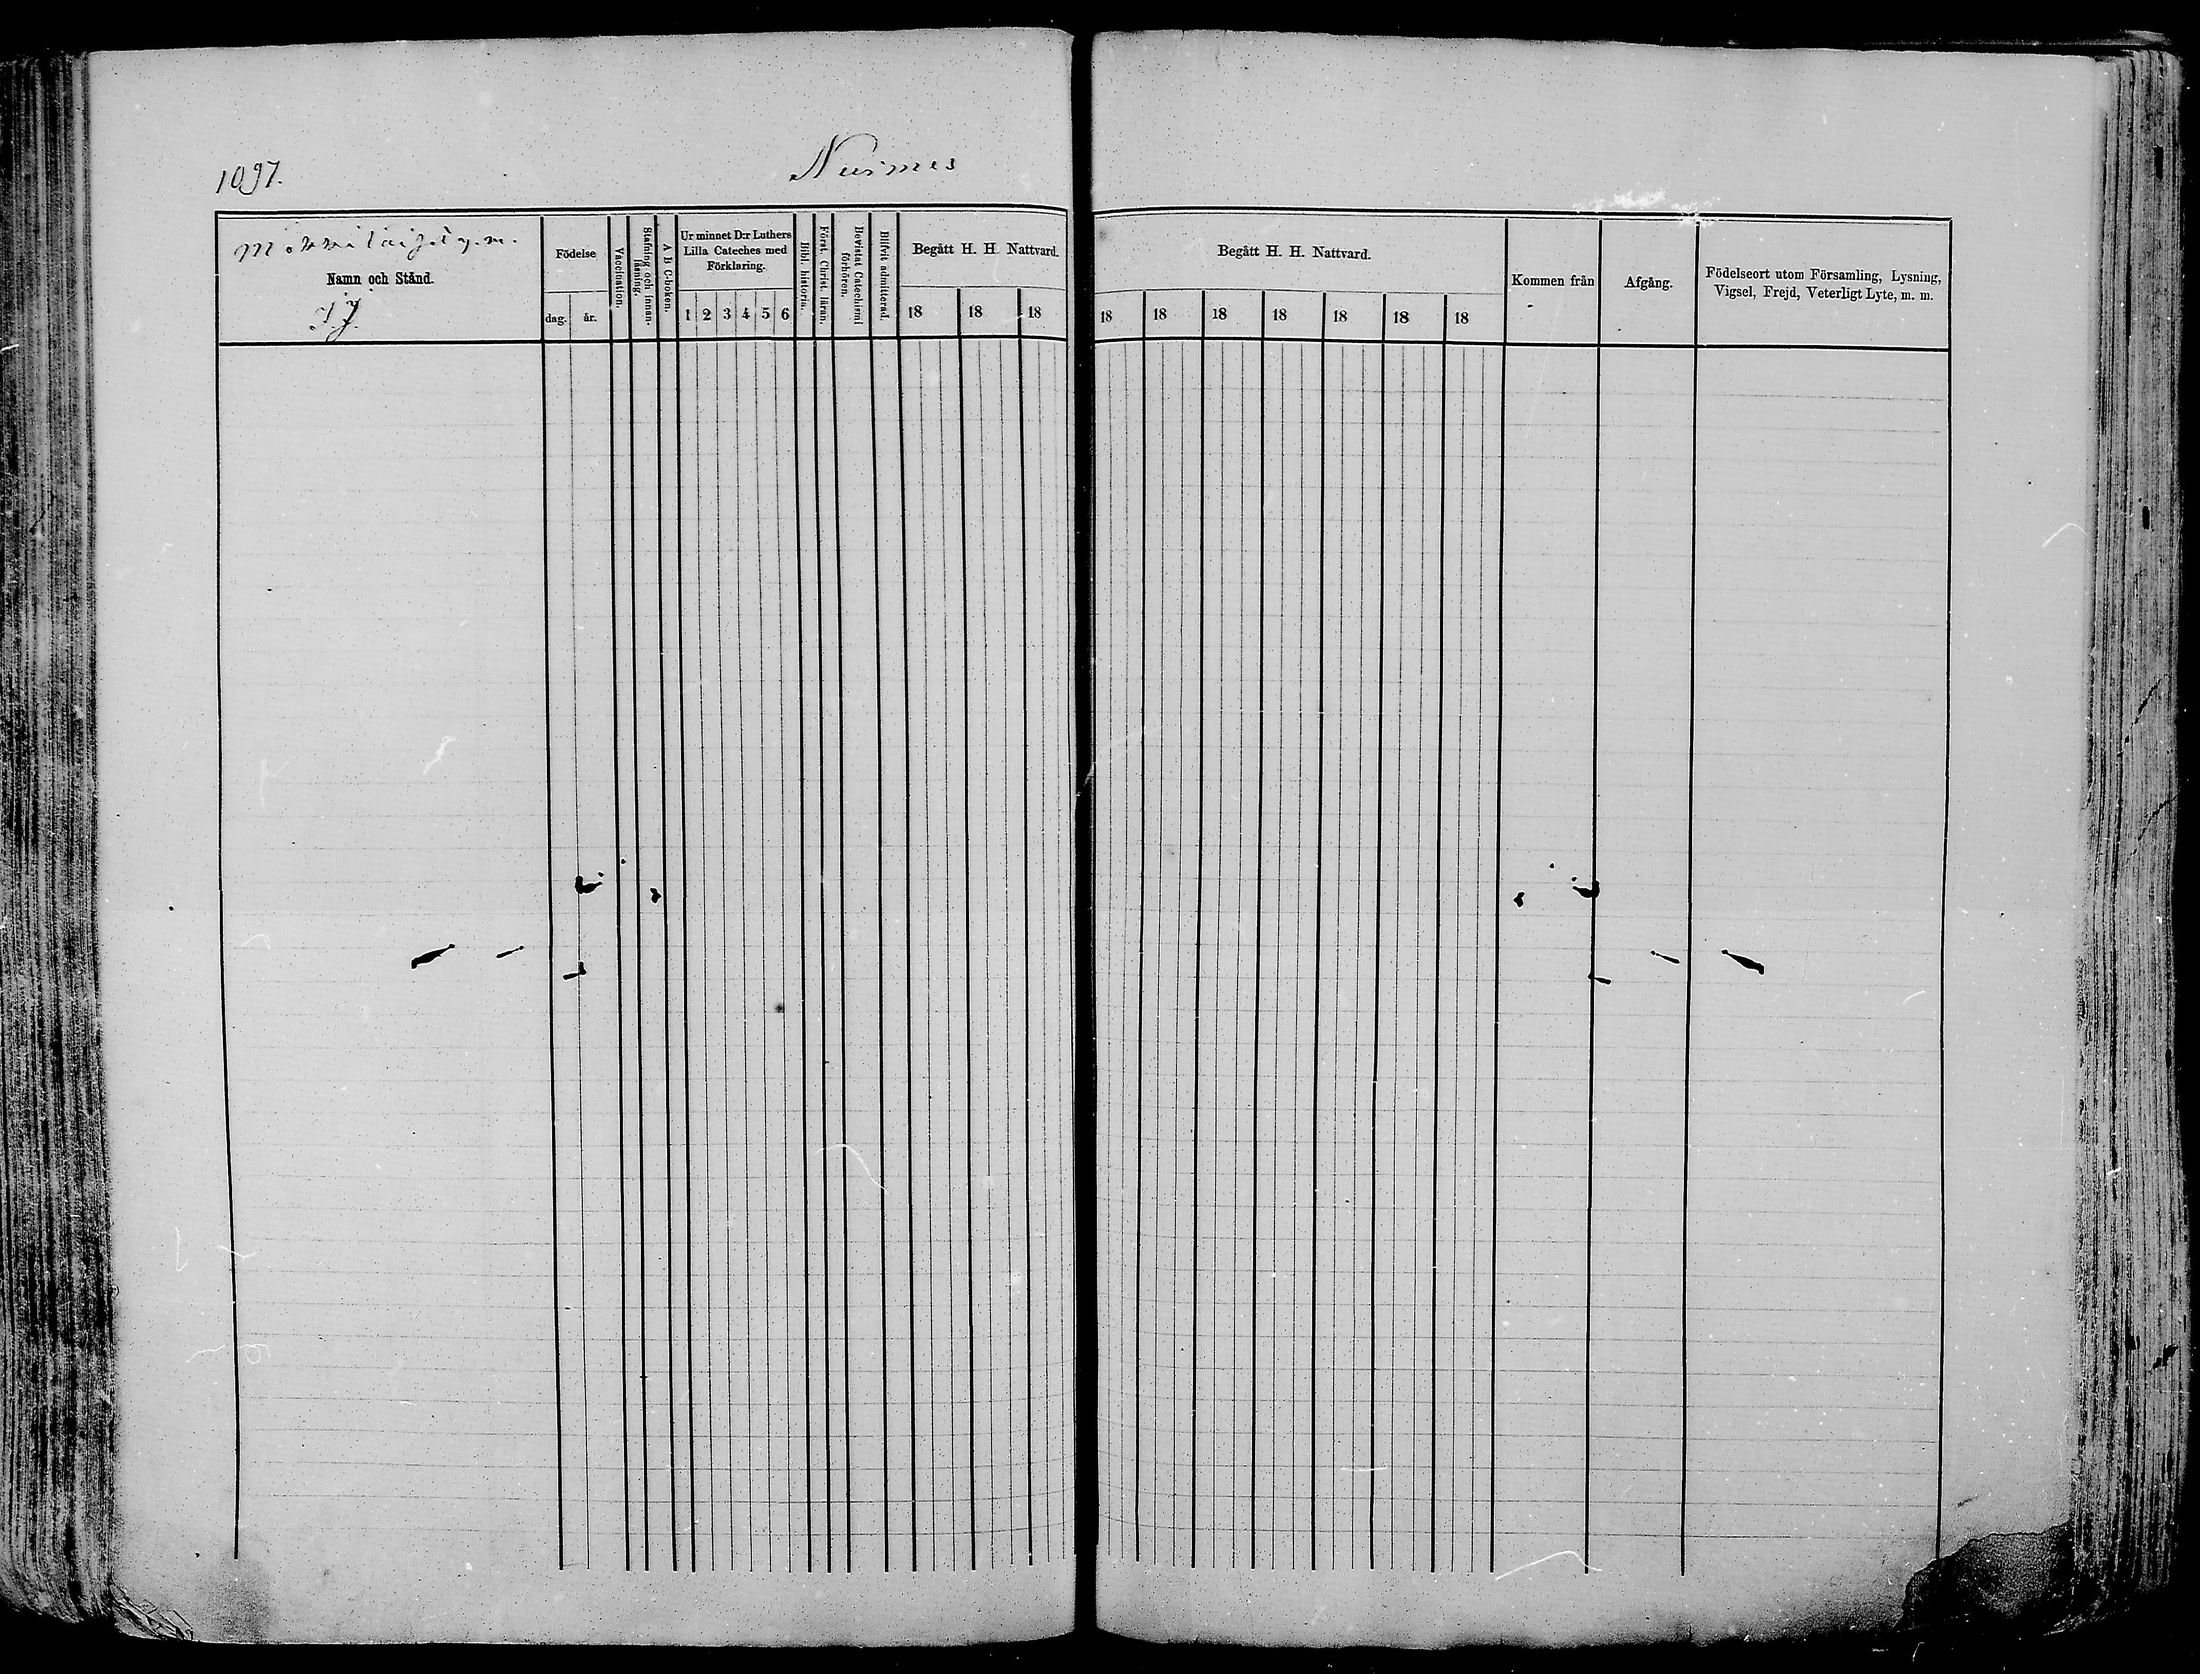 1097.
Nurmes
Namn och Stånd.
Födelse
dag.
år.
Vaccination.
Stafning och innan-
läsning.
A B C-boken.
Ur minnet D:r Luthers
Lilla Cateches med
Förklaring.
1 2 3 4 5 6
Bibl. historia.
Först. Christ. läran.
Bevistat Catechismi
förhören.
Blifvit admitterad.
Begått H. H. Nattvard.
18 18 18
Begått H. H. Nattvard.
18 18 18 18 18 18 18
Kommen från
Afgång.
Födelseort utom Församling, Lysning,
Vigsel, Frejd, Veterligt Lyte, m. m.